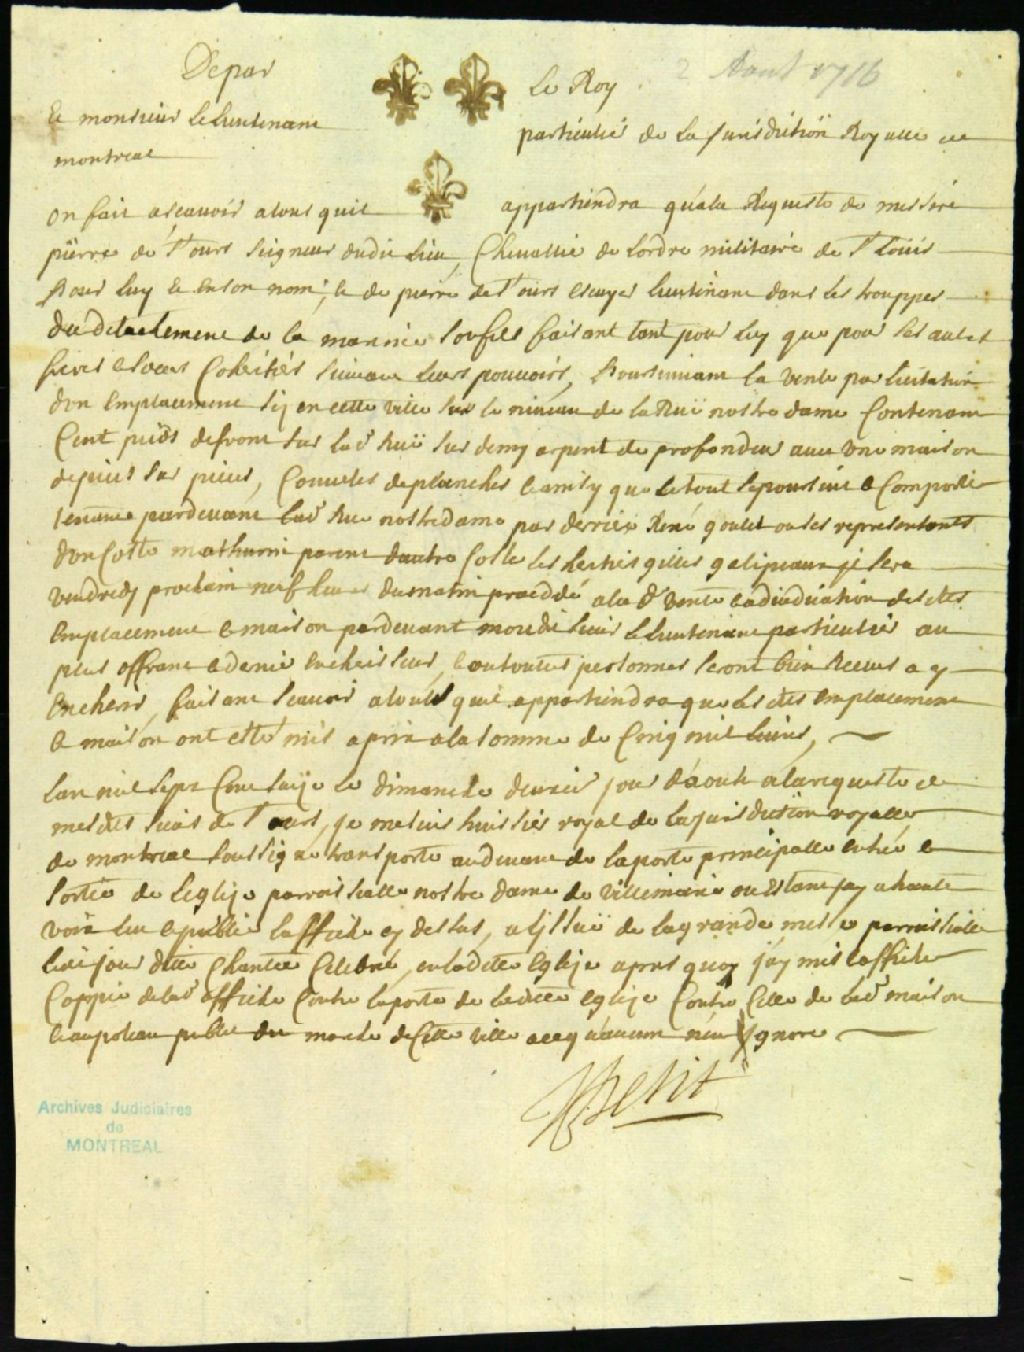 Depar Le Roy
2 Aout 1716
Et monsieur Le Lieutenant particulié de la Jurisdiction Royalle de
montreal
On fait ascauoir atous quil appartiendra qu'ala Requeste de messire
pierre de St ours seigneur dudit Lieu, Cheuallié de Lordre militaire de St Loüis
pour Luy et en son nom, et de pierre de St ours escuyer Lieutenant dans les trouppes
du detachement de la marine son fils faisant tant pour Luy que pour ses autres
freres et soeurs Coheritiés suiuant leurs pouuoirs, poursuiuant la vente par licitation
dun Emplacement sis en cette ville sur le niueau de la Ruë nostre dame Contenant
Cent pieds de front sur lade Ruë sur demy arpent de profondeur auec une maison
de pieces sur pieces, Couuertes de planches et ainsy que le tout se poursuit et Comporte
tenant pardeuant lade Rue nostredame par derriere René goulet ou ses representants
dun Costé mathurin parent dautre Costé les heritiers galipeaux, il sera
vendredy prochain neuf heures du matin procedé ala de vente et adiudication desdits
Emplacement et maison pardeuant mondit sieur Le Lieutenant particulié au
plus offrant et dernié encherisseur, et ou toutes personnes seront bien Receues a y
Encherir, faisant scauoir atous quil appartiendra que Lesdits emplacement
et maison ont esté mis a prix ala somme de Cinq mil Liures,
Lan mil sept Cent saize le dimanche deuxieme jour d'aoust alarequeste de
mesdits sieurs de St ours, je me suis huissier royal de la jurisdiction royalle
de montreal soussigné transporté au deuant de la porte principalle entrée et
sortie de leglise parroissialle nostre dame de villemarie ou Estant jay a haute
voix leu et publié laffiche cy dessus, a lissuë de la grande messe parroissialle
ledit jour ditte Chantée Celebrée, en ladite Eglise apres quoy j'ay mis et affiché
Coppie delade affiche Contre laporte de ladite eglise Contre Celle de lade maison
et au poteau public du marché de Cette ville a ce qu'aucun n'en ygnore
Petit
Archives Judiciaires
de
MONTREAL